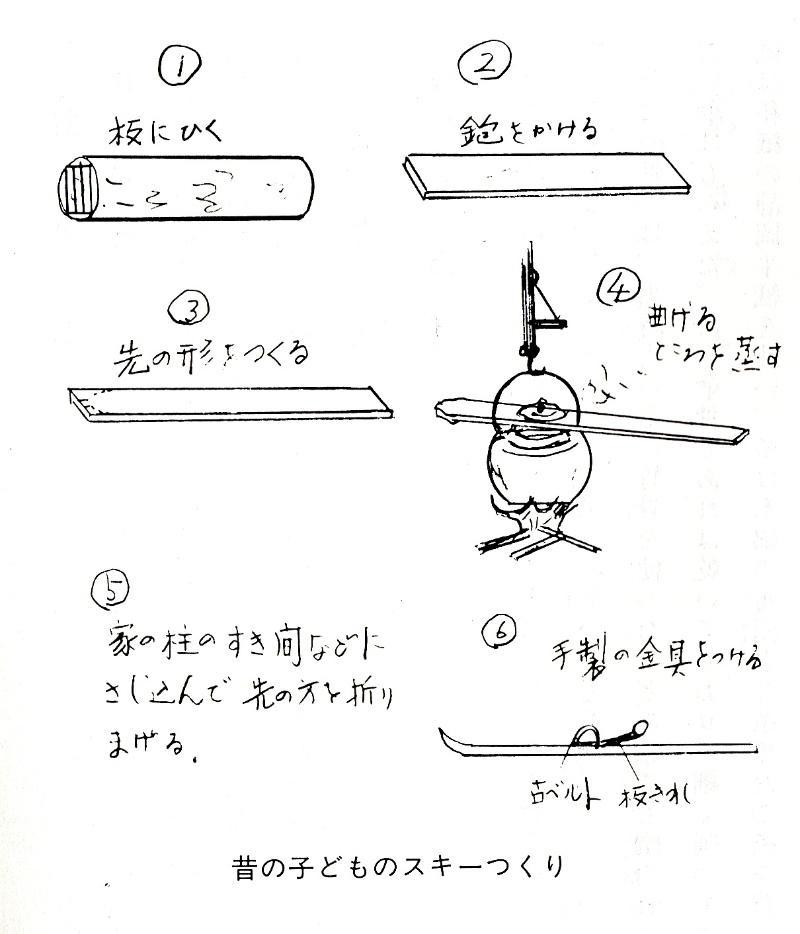 ①
板にひく
②
鉋をかける
③
先の形をつくる
④
曲げる
ところを蒸す
⑤
家の柱のすき間などに
さし込んで先の方を折り
まげる.
⑥
手製の金具をつける
古ベルト 板きれ
昔の子どものスキーつくり